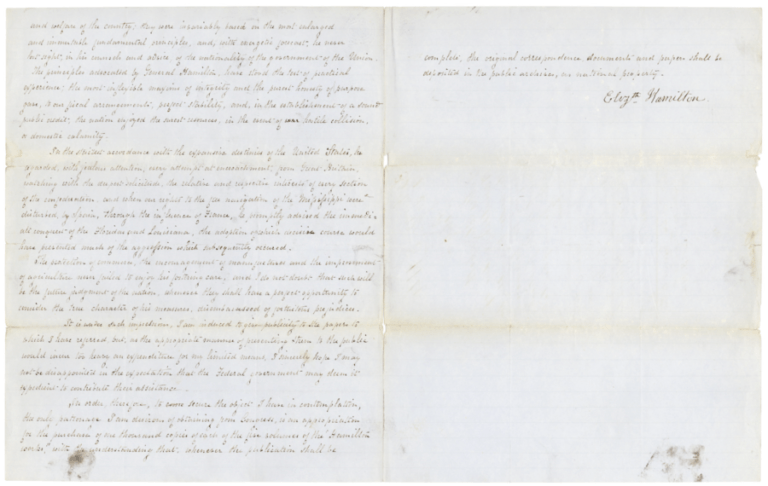 and welfare of the country; they were invariably based in the most enlarged
and immutable fundamental principles, and, with energetic forecast, he never
lost sight, in his counsels and advice, of the nationality of the government of the Union.
The principles advocated by General Hamilton, have stood the test of practical
experience: the most inflexible maxims of integrity and the purest honesty of purpose
gave, to our fiscal arrangements, perfect stability, and, in the establishment of a sound
public credit, the nation enjoyed the surest resources, in the event of war, hostile collision,
or domestic calamity.
In the strictest accordance with the expansive destinies of the United States, he
regarded, with jealous attention, every attempt at encroachment, from Great Britain,
watching with the deepest solicitude, the relative and respective interests of every section
of the confederation and when our right to the free navigation of the Mississippi were
disturbed, by Spain, through the influence of France, he promptly advised the immediate
conquest of the Floridas and Louisiana, the adoption of which decisive course would
have prevented much of the aggression which subsequently occurred.
The extension of commerce, the encouragement of manufactures and the improvement
of agriculture were never to enjoy his fostering care, and I do not doubt that such will
be the justice judgment of the nation, whenever they shall have a proper opportunity to
consider the true character of his measures, disencumbered of partizan prejudices.
It is under such impressions, I am induced to give publicity to the papers to
which I have referred, but, as the appropriate manner of presenting them to the public
would incur too heavy an expenditure for my limited means, I sincerely hope I may
not be disappointed in the expectation that the Federal government may deem it
expedient to contribute their assistance.
In order, therefore, to more secure the object I have in contemplation,
the only patronage I am desirous of obtaining from Congress, is an appropriation
for the purchase of one thousand copies of each of the five volumes of the "Hamilton
works," with the understanding that, whenever the publication shall be
complete, the original correspondence, documents and papers shall be
deposited in the public archives, as national property.
Elizth Hamilton